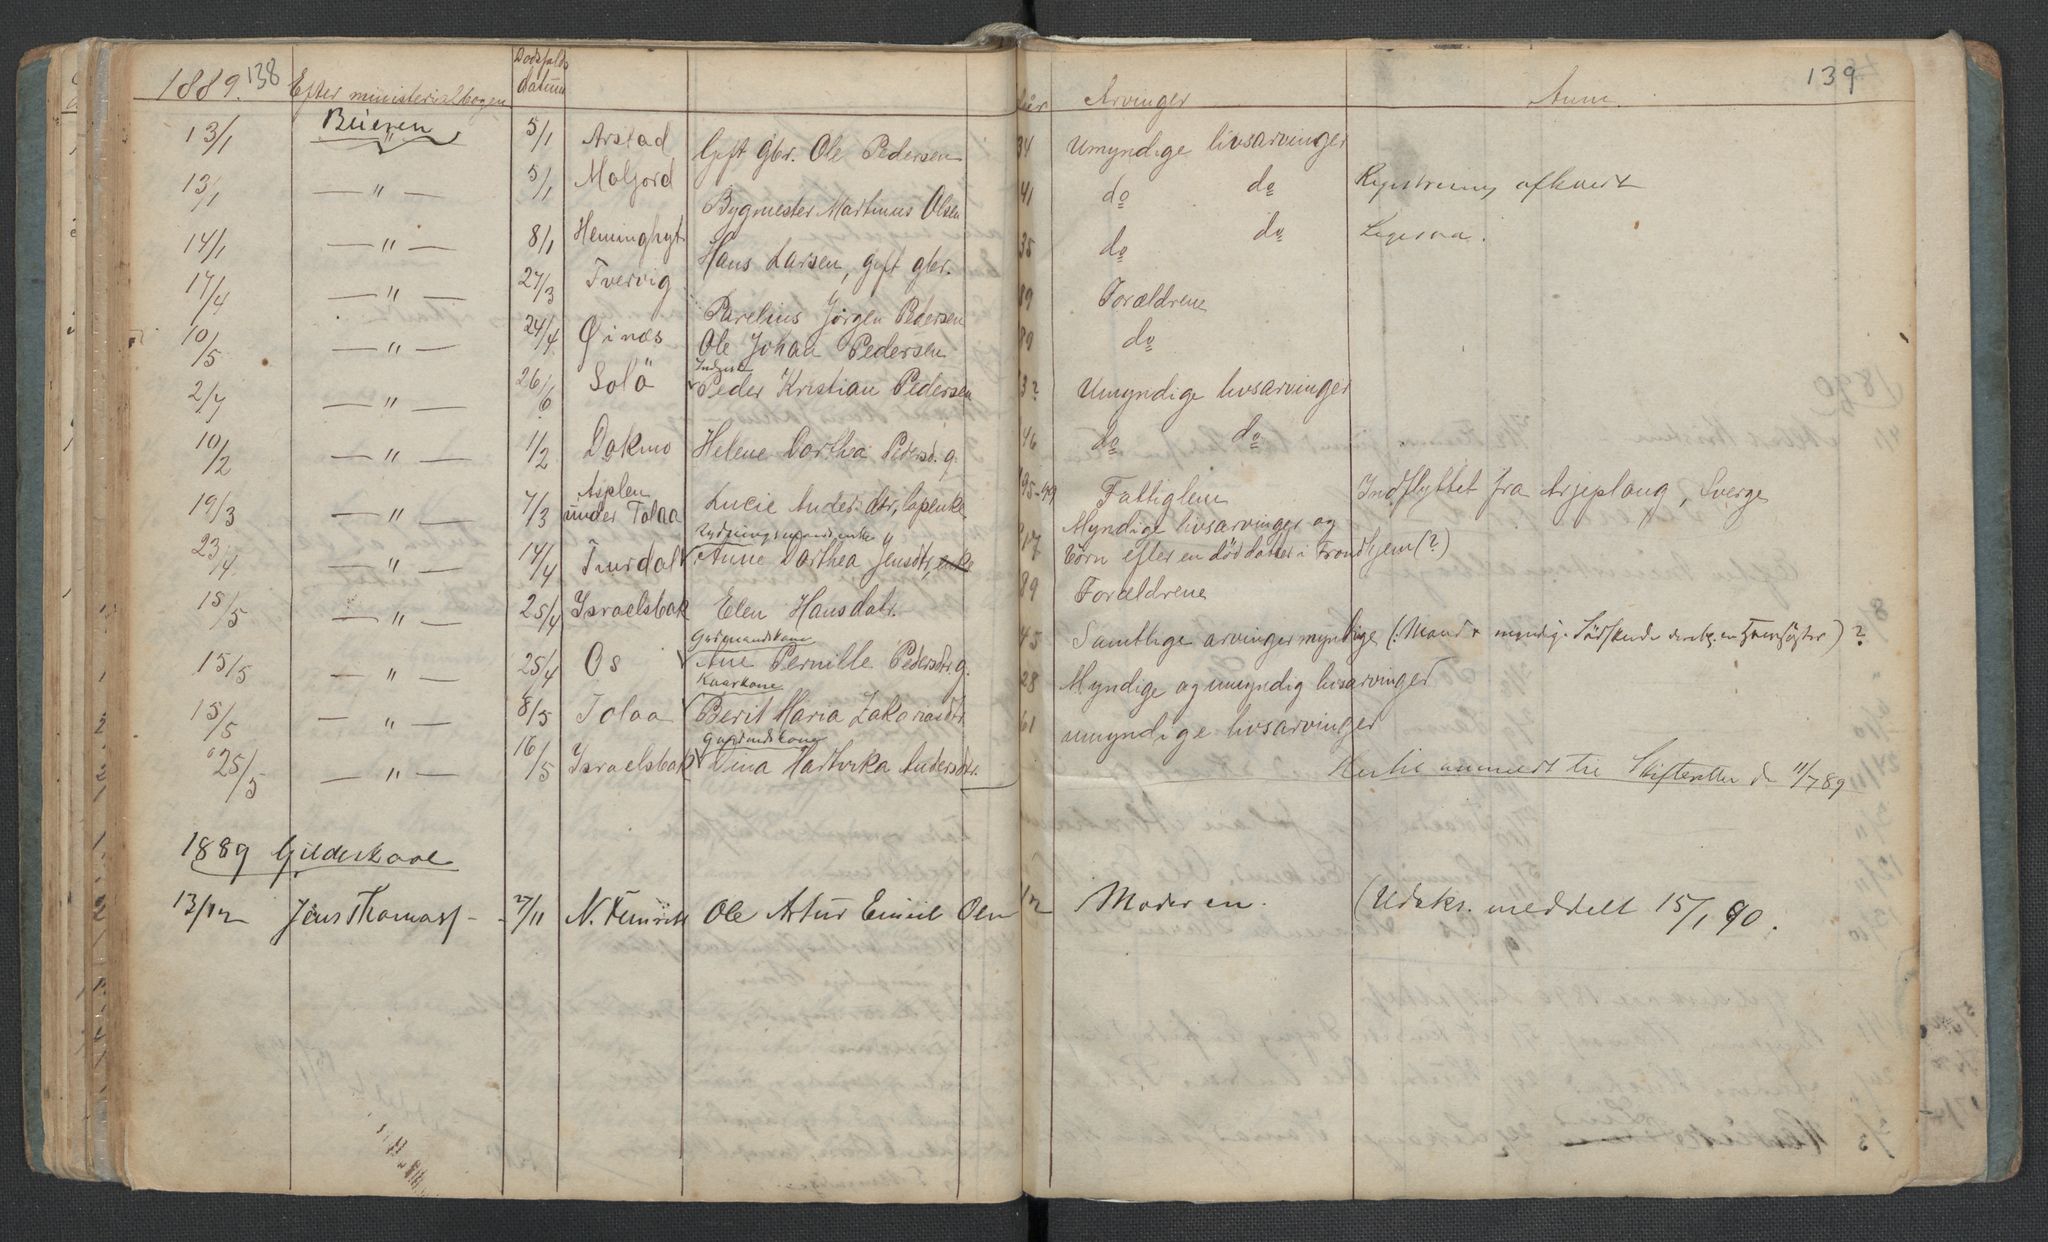 1889. 138 Efter ministerialbogen Dødsfalds datum Arvinger Anm. 139
13/1 Beieren 5/1 Arstad Gift gbr. Ole Pedersen 34 Umyndige livsarvinger
13/1 — " — 5/1 Moljord Bygmester Martinus Olsen 41 do do Registrering afholdt
14/1 — " — 8/1 Heminghyt Hans Larsen, gift gbr. 35 do do Ligesaa.
17/4 — " — 27/3 Tvervig Parelius Jørgen Pedersen 89 Forældrene
10/5 — " — 24/4 Øinæs Ole Johan Pedersen 89 do
Inderst
2/7 — " — 26/6 Solö Peder Kristian Pedersen Umyndige livsarvinger
10/2 — " — 1/2 Dokmo Helene Dorthea Pedersd. g. 46 do do
19/3 — " — 7/3 Asplen under Tolaa Lucie Anders.dtr, lapenke 95-99 Fattiglem Indflyttet fra Arjeplaug, Sverge
Rydningsmandsenke
23/4 — " — 14/4 Anne Dorthea Jensdtr, enke 17 Myndige livsarvinger og
Børn efter en død datter i Trondhjem (?)
15/5 — " — 25/4 Israelsbak Elen Hansdatr. 89 Forældrene
Gaardmandskone
15/5 — " — 25/4 Os Ane Pernille Pedersdtr g. 45 Samtlige arvinger myndige (: Mand & myndige Södskende en ) ?
15/5 — " — 8/5 Tolaa Berit Maria Zakariasdtr. 28 Myndige og umyndig livsarvinger
Gaardmandskone
25/5 — " — 16/5 Israelsbak Dina Hartvika Andersdtr. 61 umyndige livsarvinger
Hertil anmeldt til Skifteretten d 11/7 89
1889 Gildeskaal
13/12 Jens Thomass. 27/11 Ole Artur Emil Olsn 12 Moderen. (Udskr. meddelt 15/1 90.